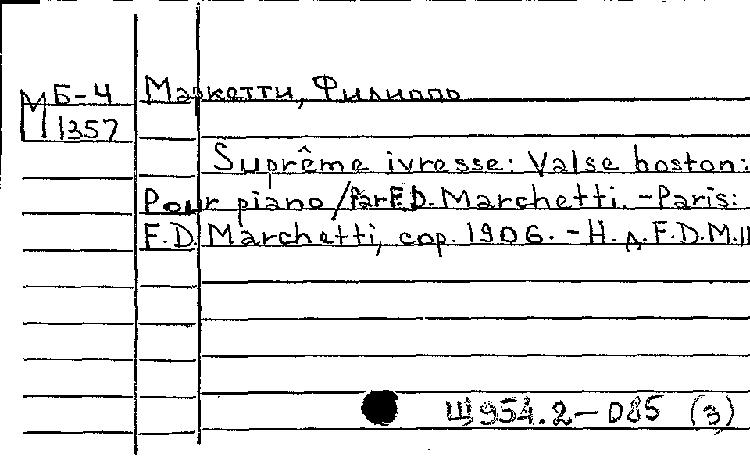 М Б-4 Маркетти, Филиппо
1357
Suprême ivresse: Valse boston:
Pour piano/Par F.D. Marchetti. -Paris:
F.D. Marchetti, cop. 1906. - Н. д. F.D.M.11
Щ954.2-085 (3)